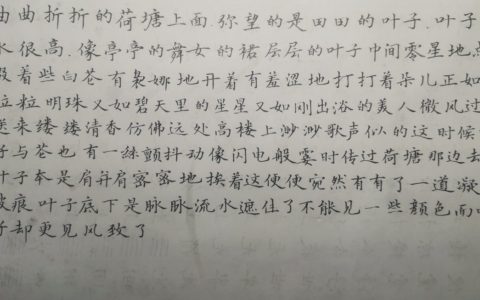 曲曲折折的荷塘上面.弥望的是田田的叶子.叶子
水很高.像亭亭的舞女的裙层层的叶子中间零星地点
缀着些白花有袅娜地开着有羞涩地打打着朵儿正如
粒粒明珠又如碧天里的星星又如刚出浴的美人微风过
送来缕缕清香仿佛远处高楼上渺渺歌声似的这时候
子与花也有一丝颤抖动像闪电般霎时传过荷塘那边去
叶子本是肩并肩密密地挨着这便便宛然有有了一道凝
波痕叶子底下是脉脉流水遮住了不能见一些颜色而
子却更见风致了